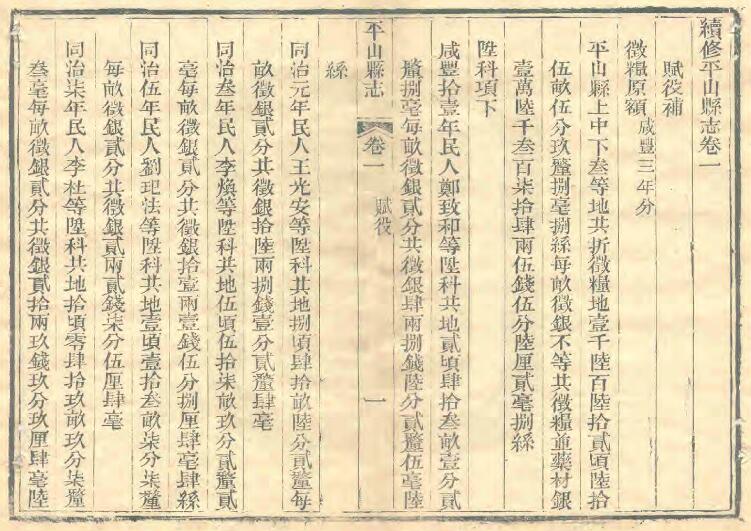 續修平山縣志卷一
賦役補
徵糧原額咸豐三年分
平山縣上中下叁等地共折徵糧地壹千陸百陸拾貳頃陸拾
伍畝伍分玖釐捌毫捌絲每畝徵銀不等共徵糧並藥材銀
壹萬陸千叁百柒拾肆兩伍錢伍分陸厘貳毫捌絲
陞科項下
咸豐拾壹年民人鄭致和等陞科共地貳頃肆拾叁畝壹分貳
釐捌毫每畝徵銀貳分共徵銀肆兩捌錢陸分貳釐伍毫陸
平山縣志 卷一 賦役 一
絲
同治元年民人王光安等陞科共地捌頃肆拾畝陸分貳釐每
畝徵銀貳分共徵銀拾陸兩捌錢壹分貳釐肆毫
同治叁年民人李煥等陞科共地伍頃伍拾柒畝玖分貳釐貳
毫每畝徵銀貳分共徵銀拾壹兩壹錢伍分捌厘肆毫肆絲
同治伍年民人劉玘法等陞科共地壹頃壹拾叁畝柒分柒釐
每畝徵銀貳分共徵銀貳兩貳錢柒分伍厘肆毫
同治柒年民人李杜等陞科共地拾頃零肆拾玖畝玖分柒釐
叁毫每畝徵銀貳分共徵銀貳拾兩玖錢玖分玖厘肆毫陸